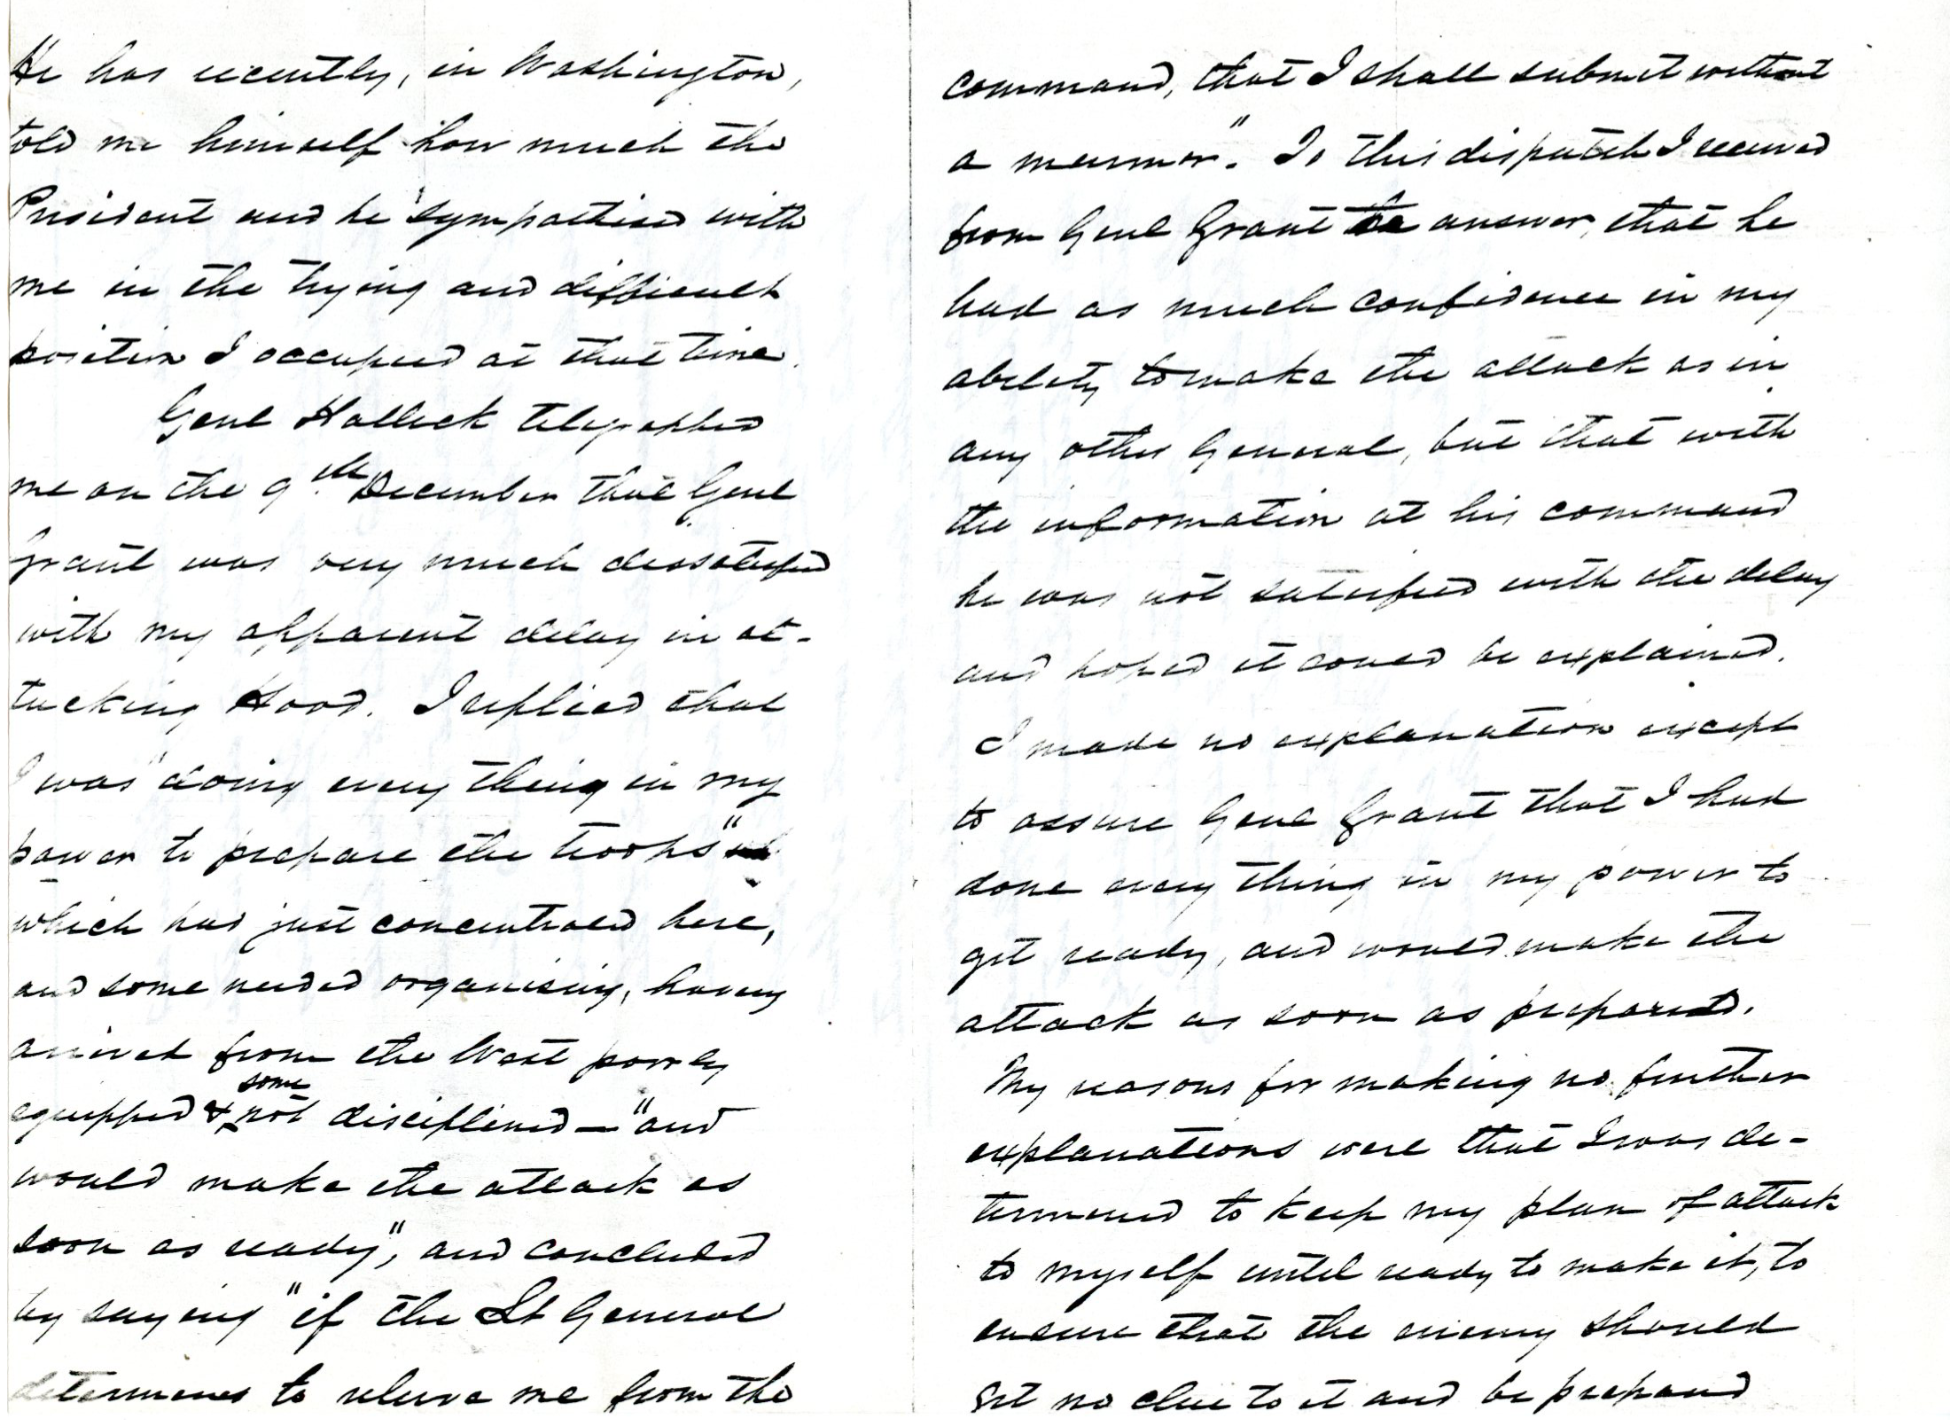 He has recently, in Washington,
told me himself how much the
President and he sympathised with
me in the trying and difficult
position I occupied at that time.
Genl Halleck telegraphed
me on the 9th December that Genl
Grant was very much dissatisfied
with my apparent delay in at-
tacking Hood. I replied that
I was "doing every thing in my
power to prepare the troops"
which had just concentrated here,
and some needed organising, having
arrived from the West poorly
equipped & some not disciplined — "and
would make the attack as
soon as ready", and concluded
by saying "if the Lt General
determines to relieve me from the
command, that I shall submit without
a murmur". To this dispatch I received
from Genl Grant answer, that he
had as much confidence in my
ability to make the attack as in
any other General, but that with
the information at his command
he was not satisfied with the delay
and hoped it could be explained.
I made no explanation except
to assure Genl Grant that I had
done every thing in my power to
get ready, and would make the
attack as soon as prepared.
My reasons for making no further
explanations were that I was de-
termined to keep my plan of attack
to myself until ready to make it, to
ensure that the enemy should
get no clue to it and be prepared